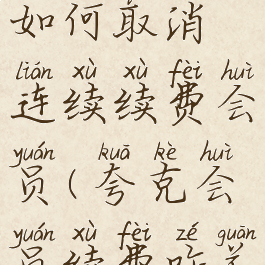 如何取消
lián xù xù fèi huì
连续续费会
yuán kuā kè huì
员(夸克会
yuán xù fèi zé guān
员续费